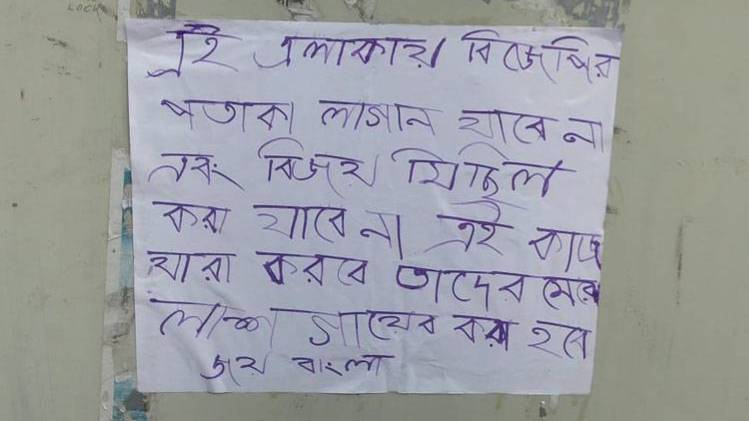 এই এলাকায় বিজেপির
পতাকা লাগান যাবে না
এবং বিজয় মিছিল
করা যাবে না এই কাজ
যারা করবে তাদের মেরে
লাশ গায়েব করা হবে
জয় বাংলা